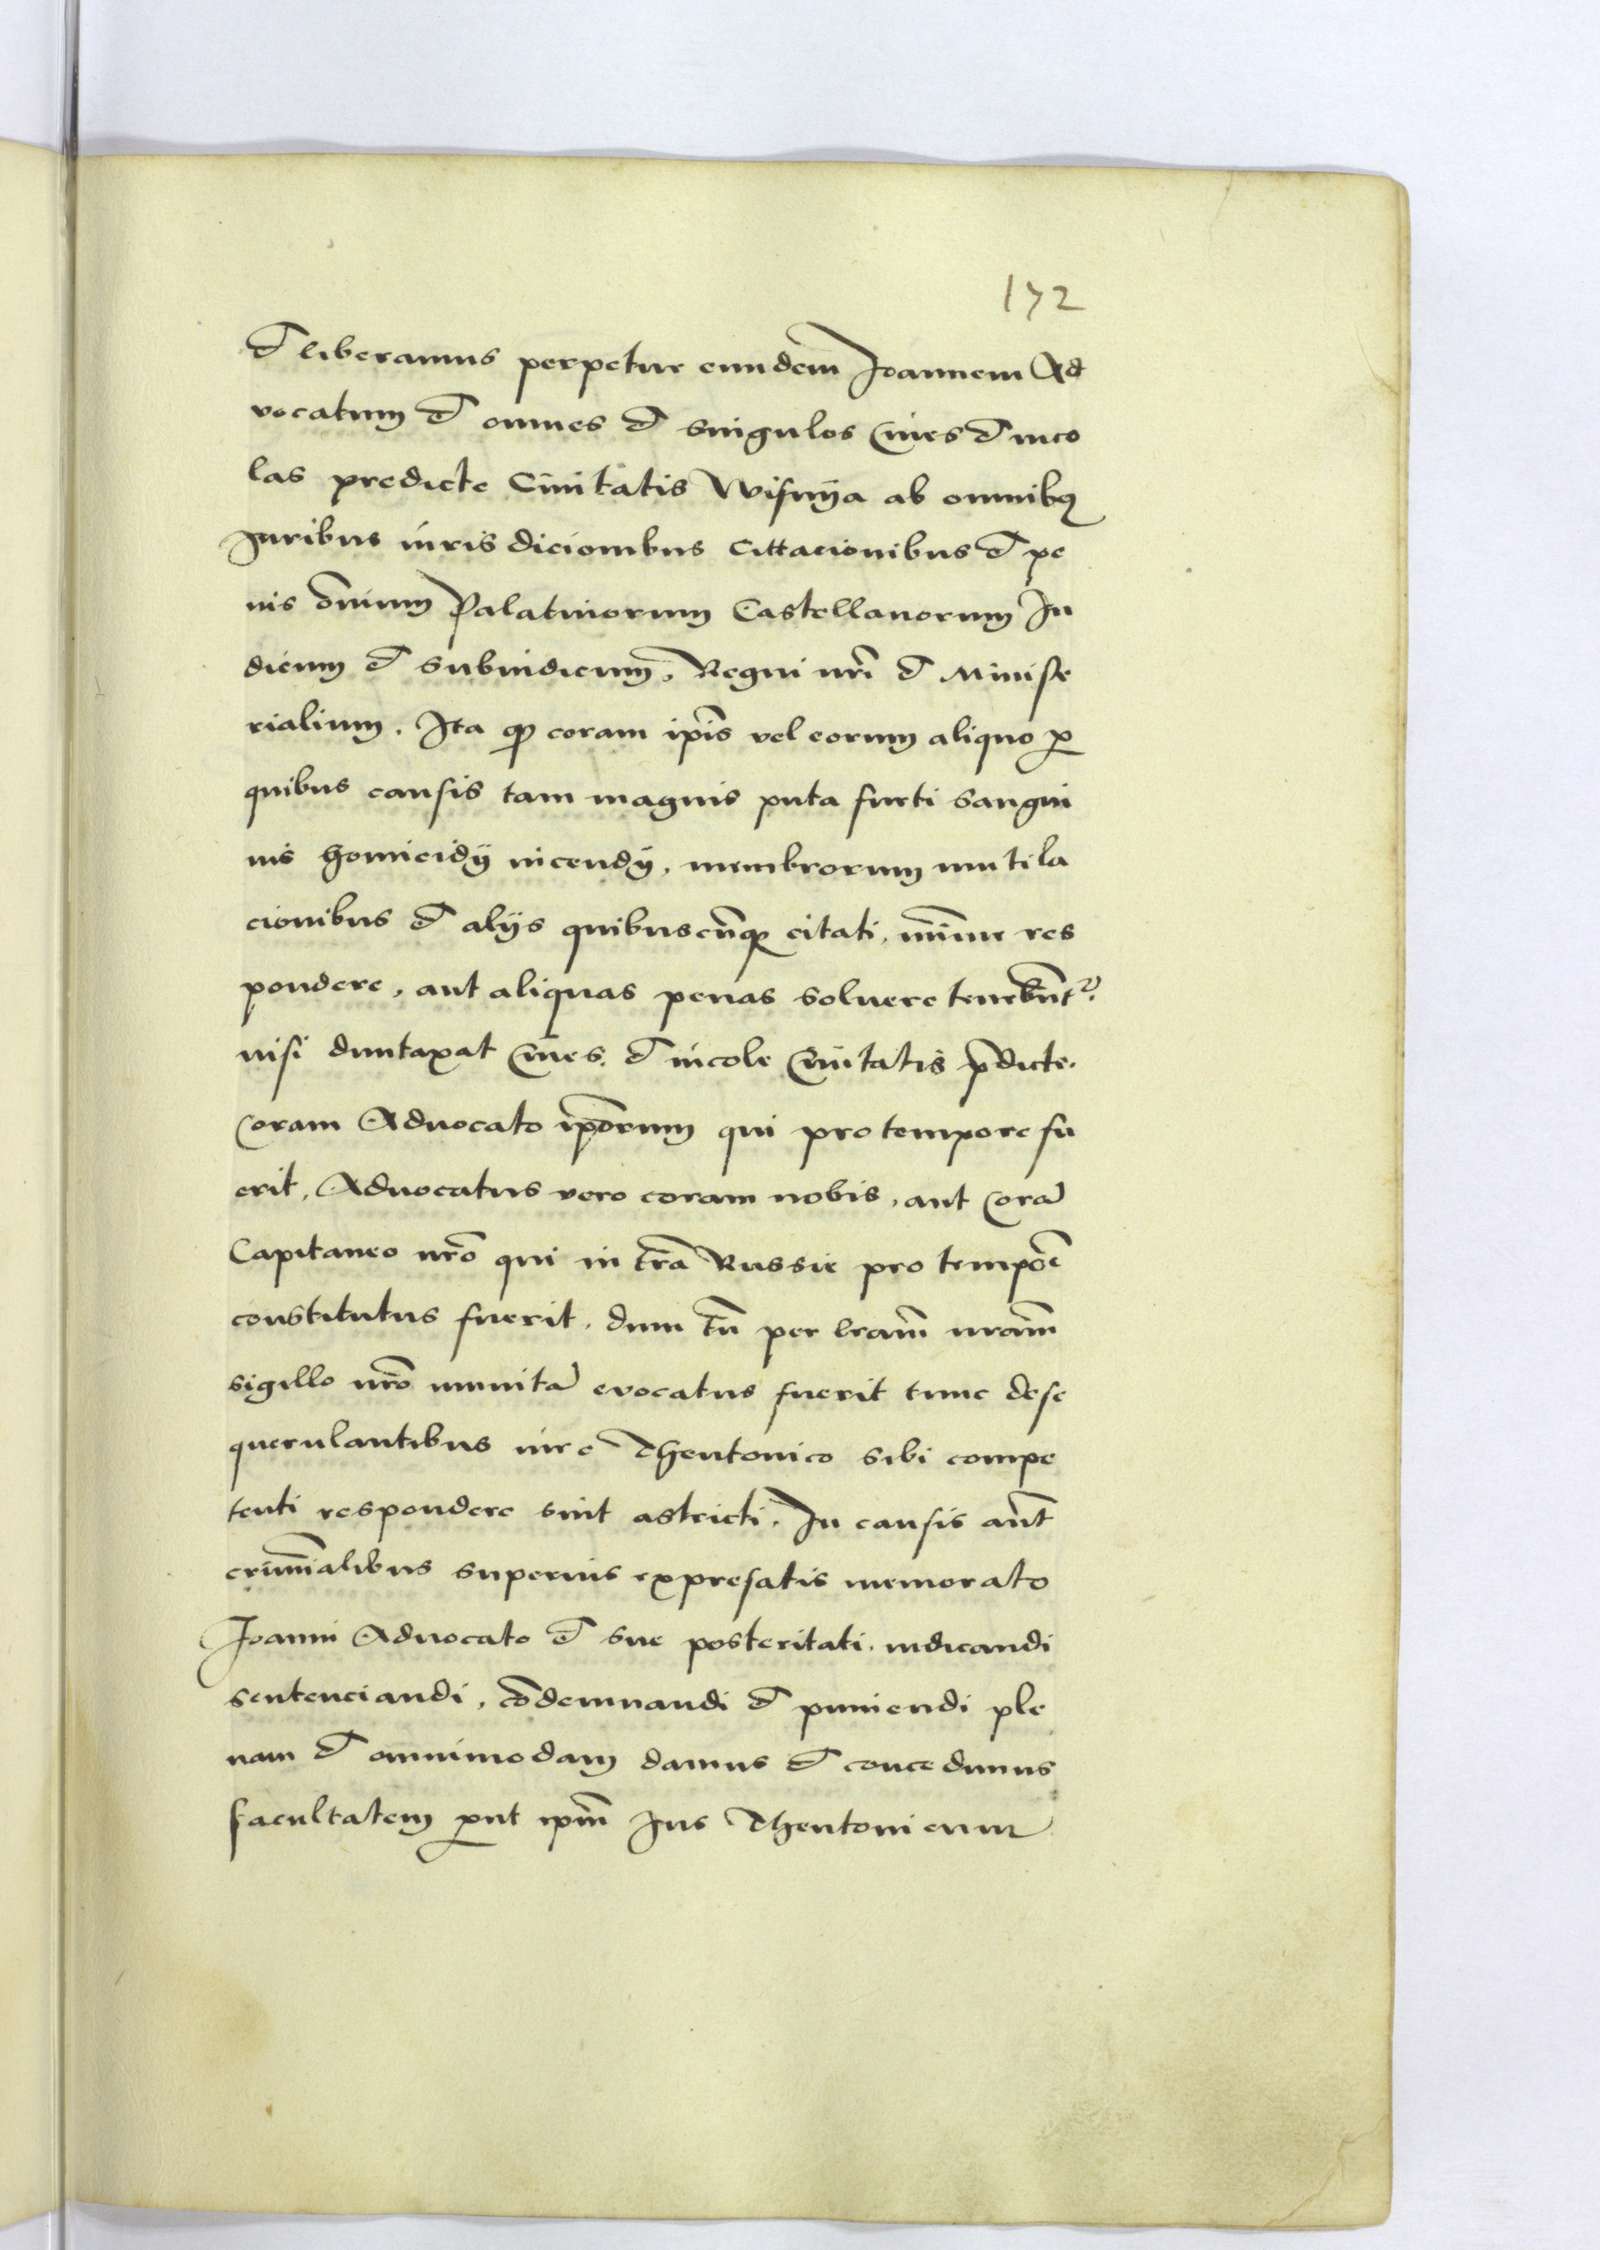 172
et liberamus perpetue eundem Joannem Ad
vocatum et omnes et singulos Cives et inco
las predicte Civitatis Wisnija ab omnibꝫ
Juribus iuris dicionibus Cittacionibus et pe
nis om̄nium Palatinorum Castellanorum Ju
dicum et subiudicum, Regni nr̄i et Ministe
rialium. Ita qꝫ coram ip̄is vel eorum aliquo ꝓ
quibus causis tam magnis puta furti sangui
nis homicidij incendij, membrorum mutila
cionibus et alijs quibuscūqꝫ citati, mīnime res
pondere, aut aliquas penas soluere tenebūtʳ.
nisi duntaxat Cives. et incole Civitatis p̄dicte.
Coram Aduocato ip̄orum qui pro tempore fu
erit, Aduocatus vero coram nobis, aut Corā
Capitaneo nr̄o qui in tr̄a Russie pro tempōre
constitutus fuerit, dum tn̄ per lr̄am nr̄am
sigillo nr̄o munitā evocatus fuerit tunc de se
querulantibus iure Theutonico sibi compe
tenti respondere sint astricti. In causis aut̄
crimīalibus superius expresatis memorato
Joanni Aduocato et sue posteritati. iudicandi
sentenciandi, cōdemnandi et puniendi ple
nam et omnimodam damus et concedimus
facultatem ꝓut ip̄m Jus Theutonicum